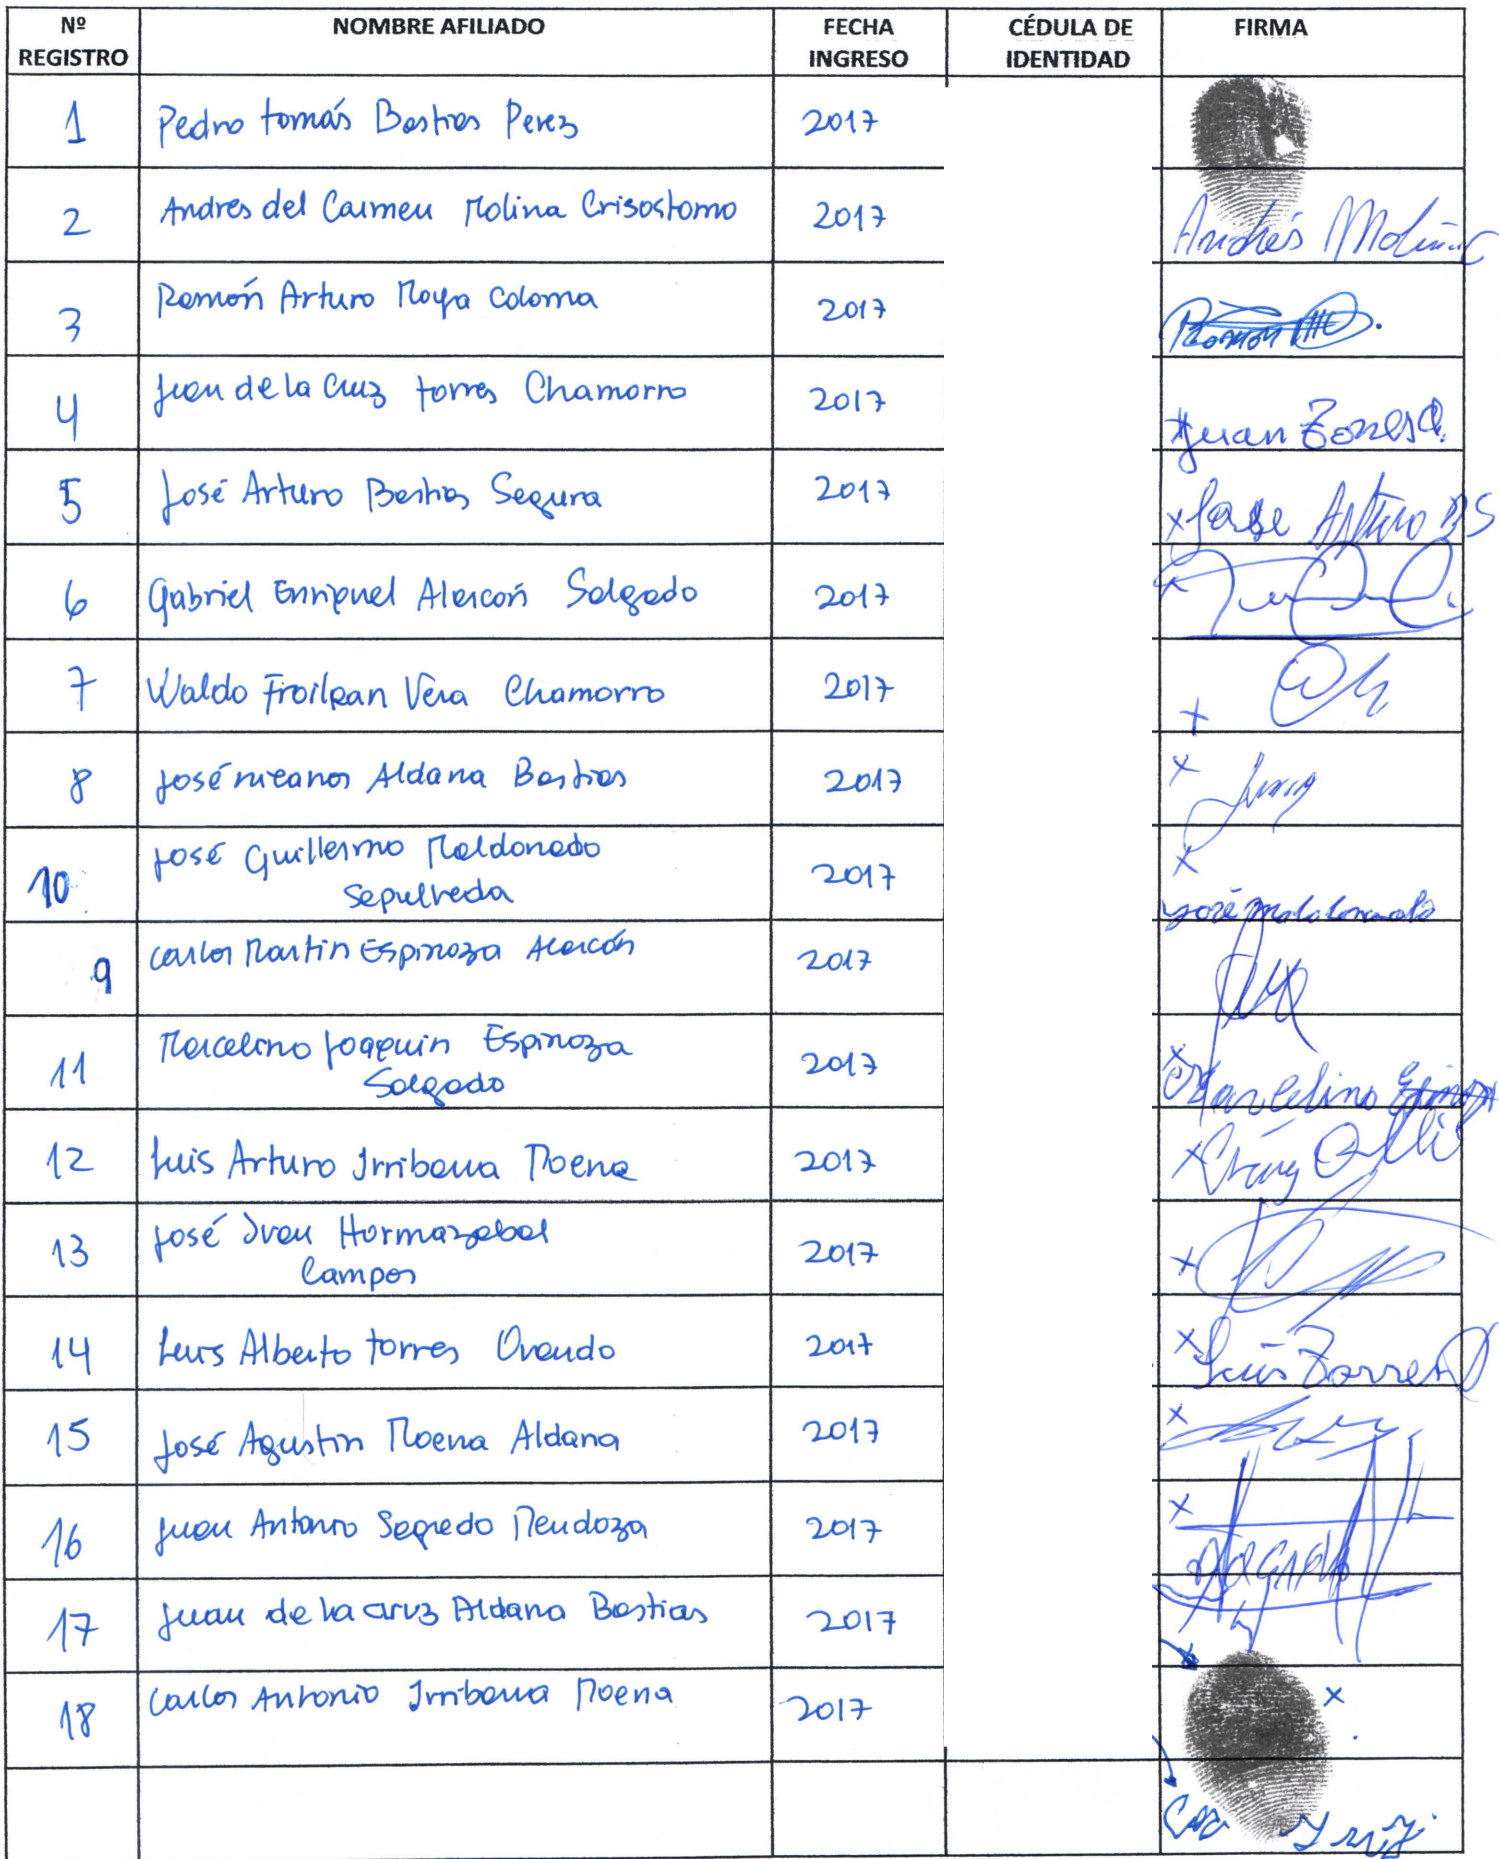 Nº REGISTRO NOMBRE AFILIADO FECHA INGRESO CÉDULA DE IDENTIDAD FIRMA
1 Pedro tomás Bastias Perez 2017
2 Andres del Carmen Molina Crisostomo 2017 Andrés Molina
3 Ramón Arturo Moya Coloma 2017 Ramon
4 Juan de la Cruz torres Chamorro 2017 Juan Torres C.
5 José Arturo Bastias Segura 2017 x Jose Arturo BS
6 Gabriel Enriquel Alarcón Salgado 2017
7 Waldo Froilean Vera Chamorro 2017 x
8 José nicanor Aldana Bastias 2017 x
10 José Guillermo Maldonado 2017 x
Sepulveda José Maldonado
9 Carlos Martin Espinoza Alarcón 2017
11 Marcelino Joaquin Espinoza 2017 x
Salgado Marcelino
12 Luis Arturo Irribarra Moena 2017 x
13 José Ivan Hormazabal 2017 x
Campos
14 Luis Alberto torres Ovando 2017 x Luis Torres O
15 José Agustin Moena Aldana 2017 x
16 Juan Antonio Sagredo Mendoza 2017 x
17 Juan de la cruz Aldana Bastias 2017
18 Carlos Antonio Irribarra Moena 2017 x